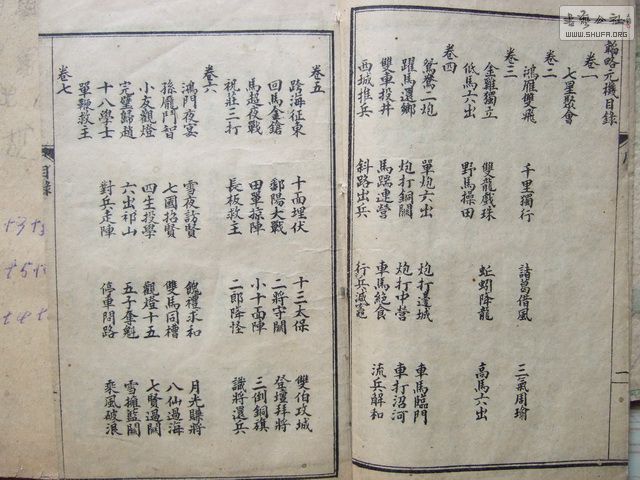 韜略元機目錄
卷一
七星聚會
卷二
鴻雁雙飛 千里獨行 諸葛借風 三氣周瑜
卷三
金雞獨立 雙龍戲珠 蚯蚓降龍 高馬六出
低馬六出 野馬操田
卷四
鴛鴦一炮 單炮六出 炮打連城 車馬臨門
躍馬還鄉 炮打銅關 炮打中營 車打沼河
雙車投井 馬踹連營 車馬絕食 流兵解和
西城推兵 斜路出兵 行兵減竈
一
卷五
跨海征東 十面埋伏 十三太保 雙伯攻城
回馬金鎗 鄱陽大戰 二將守關 登壇拜將
馬超夜戰 田單掠陣 小十面陣 三倒銅旗
祝莊三打 長板救主 二郎降怪 識將選兵
卷六
鴻門夜宴 雪夜訪賢 餽禮求和 月光賺將
孫龐鬥智 七國招賢 雙馬同槽 八仙過海
小友觀燈 四生投學 觀燈十五 七賢過關
完璧歸趙 六出祁山 五子奪魁 雪擁藍關
十八學士 對兵走陣 停車問路 乘風破浪
單鞭救主
卷七
目錄
書法公社
WWW.SHUFA.ORG